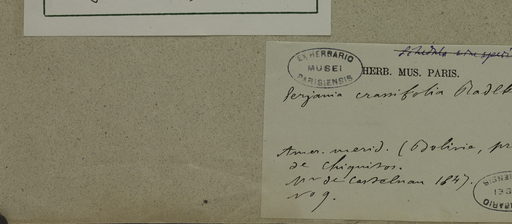 EX HERBARIO
MUSEI
PARISIENSIS
HERB. MUS. PARIS.
Serjania crassifolia Radlk
Amer. merid. (Bolivia, pr
de Chiquitos.
Mr de Castelnau 1847.
no 9.